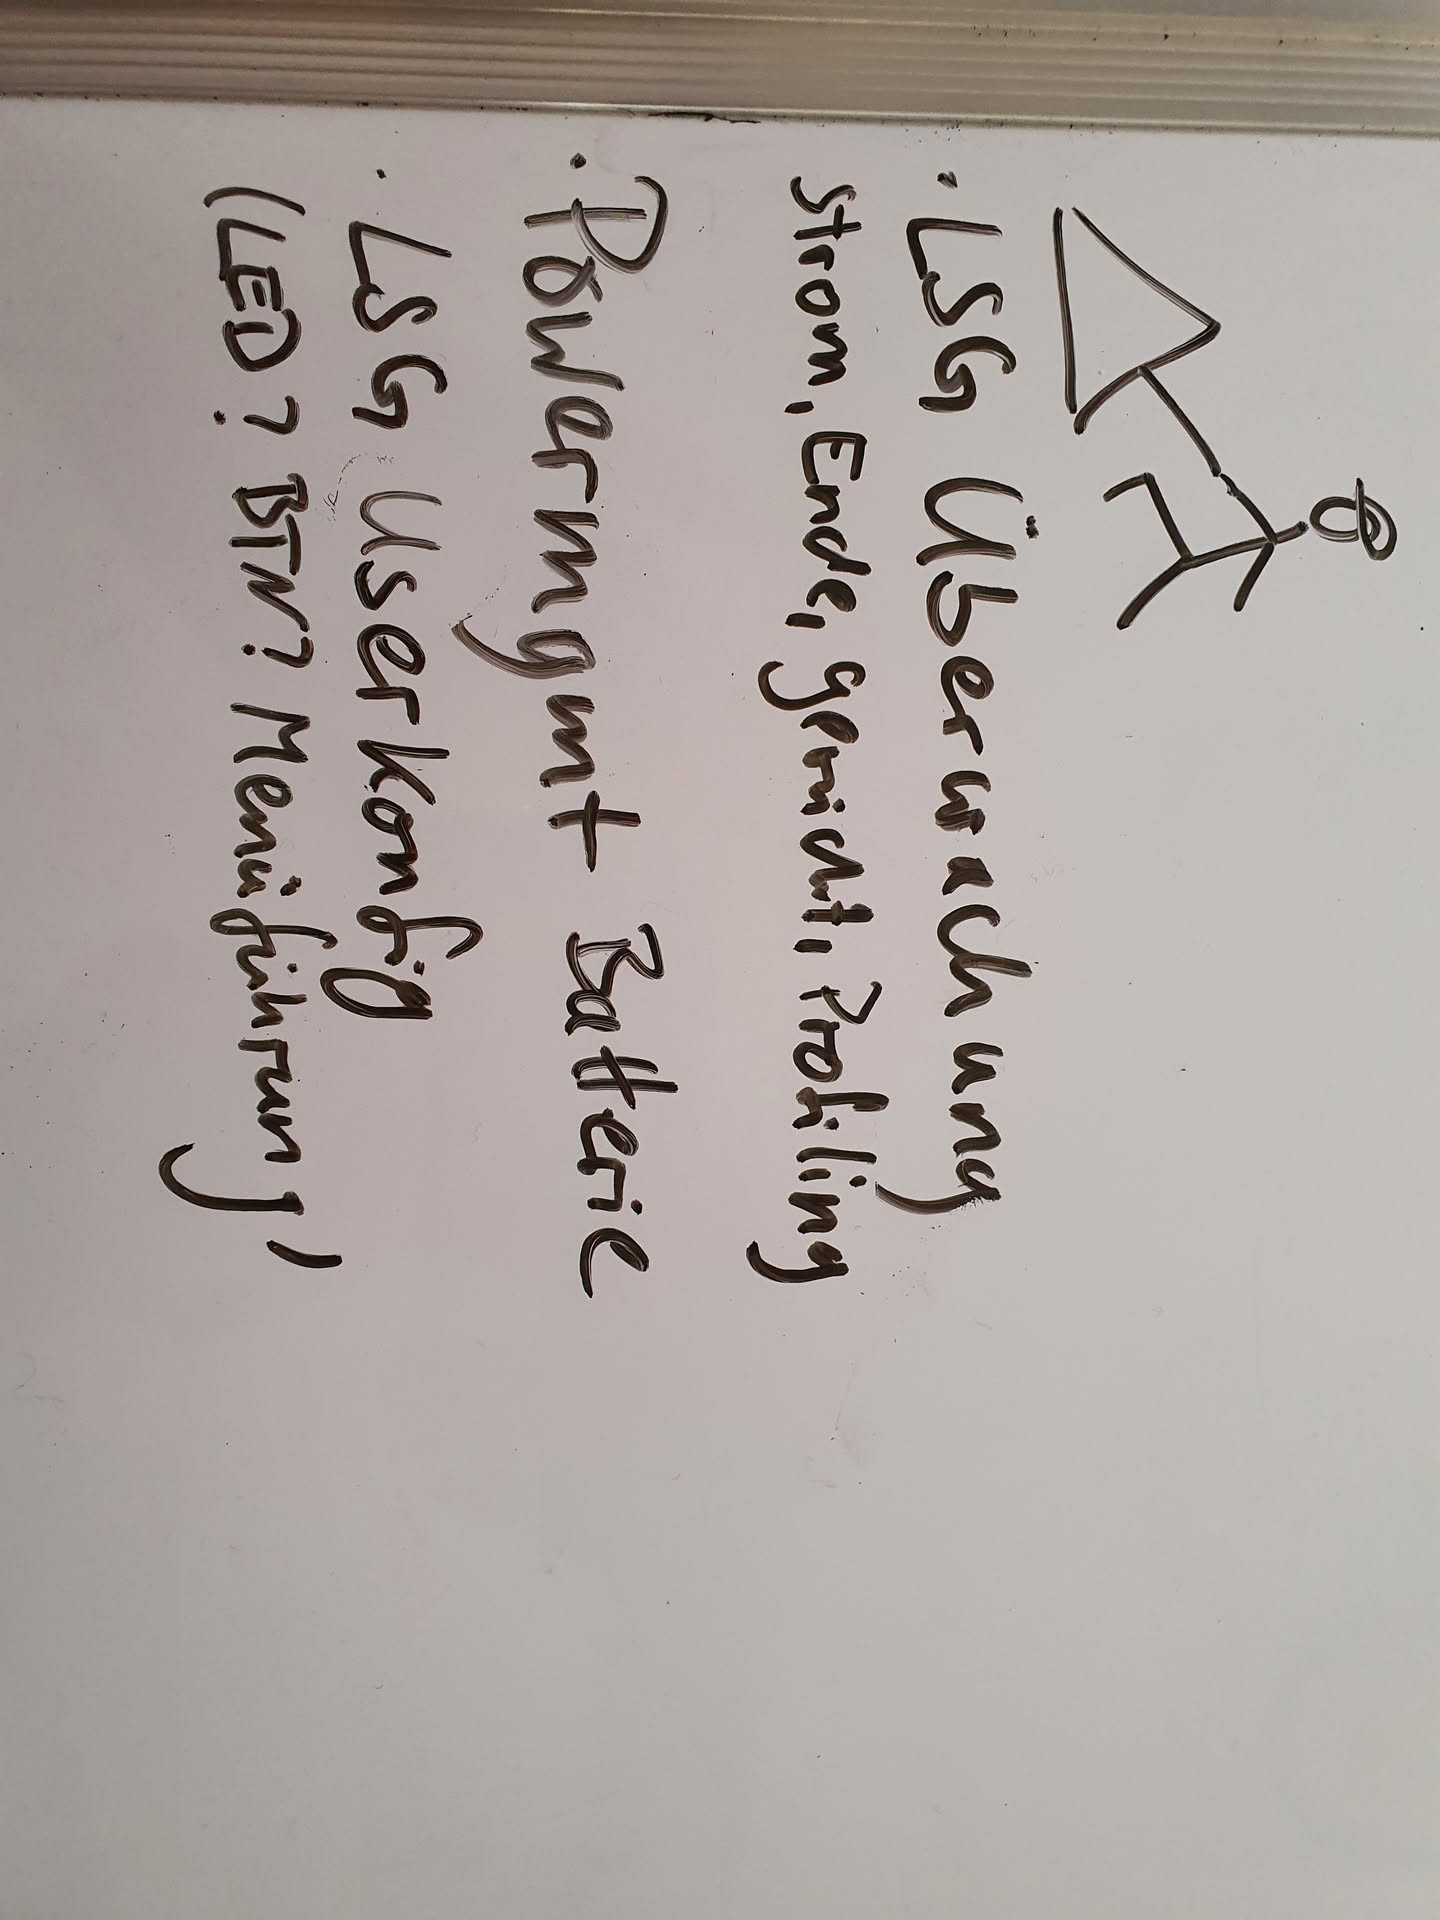 · LSG Überwachung
Strom, Ende, gewicht, Profiling
· Powermgmt Batterie
· LSG User Konfig
(LED? BTN? Menüführung,